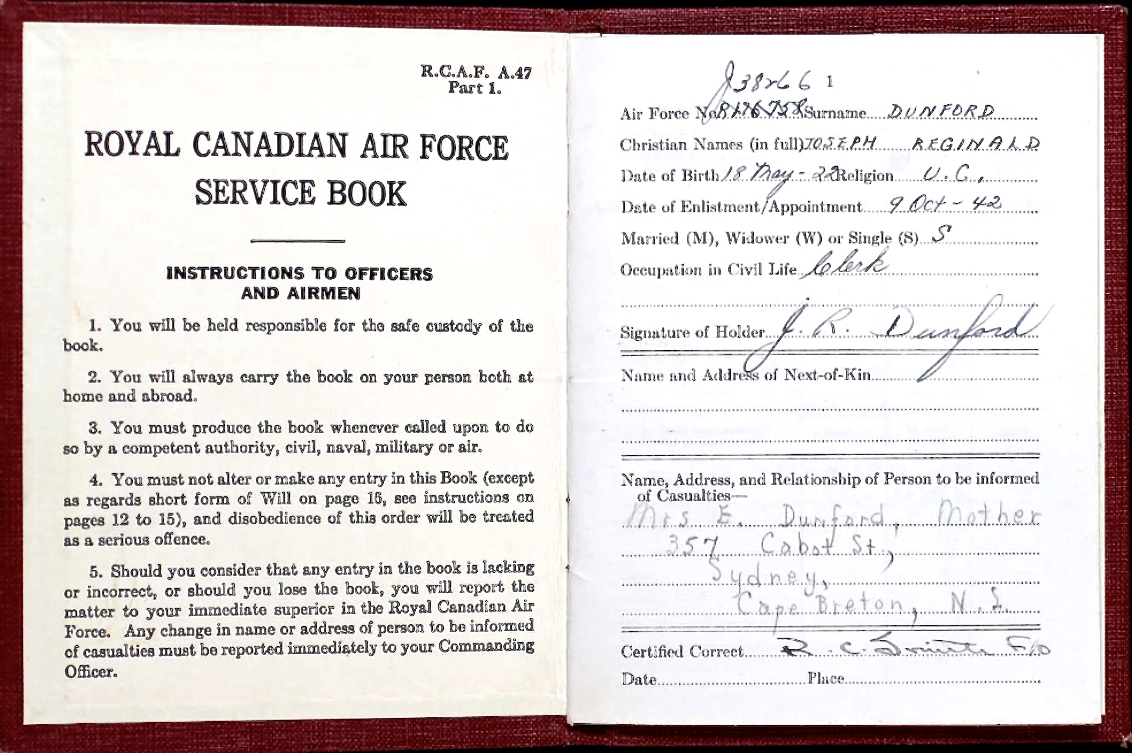 R.C.A.F. A.47
Part 1.
ROYAL CANADIAN AIR FORCE
SERVICE BOOK
INSTRUCTIONS TO OFFICERS
AND AIRMEN
1. You will be held responsible for the safe custody of the
book.
2. You will always carry the book on your person both at
home and abroad.
3. You must produce the book whenever called upon to do
so by a competent authority, civil, naval, military or air.
4. You must not alter or make any entry in this Book (except
as regards short form of Will on page 16, see instructions on
pages 12 to 15), and disobedience of this order will be treated
as a serious offence.
5. Should you consider that any entry in the book is lacking
or incorrect, or should you lose the book, you will report the
matter to your immediate superior in the Royal Canadian Air
Force. Any change in name or address of person to be informed
of casualties must be reported immediately to your Commanding
Officer.
J38266 1
Air Force No. R176758 Surname DUNFORD
Christian Names (in full) JOSEPH REGINALD
Date of Birth 18 May - 22 Religion U.C.
Date of Enlistment/Appointment 9 Oct - 42
Married (M), Widower (W) or Single (S) S
Occupation in Civil Life Clerk
Signature of Holder J. R. Dunford
Name and Address of Next-of-Kin
Name, Address, and Relationship of Person to be informed
of Casualties—
Mrs E. Dunford, Mother
357 Cabot St,
Sydney,
Cape Breton, N.S.
Certified Correct R. C. F/O
Date Place